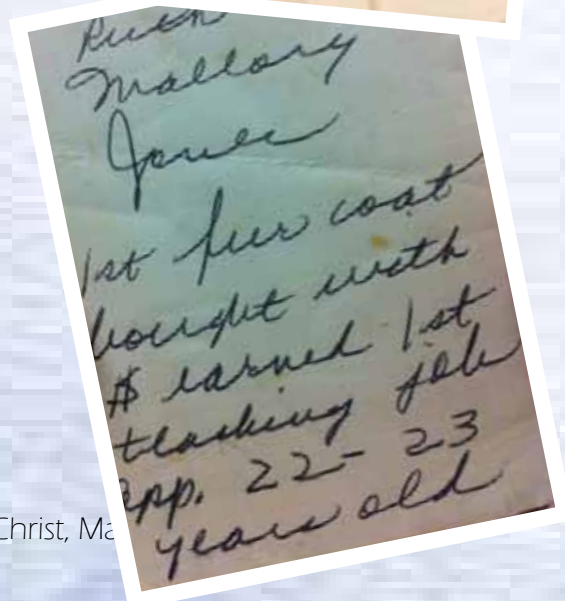 Ruth
Mallory
Jones
1st fur coat
bought with
$ earned 1st
teaching job
app. 22-23
years old
Christ, Ma